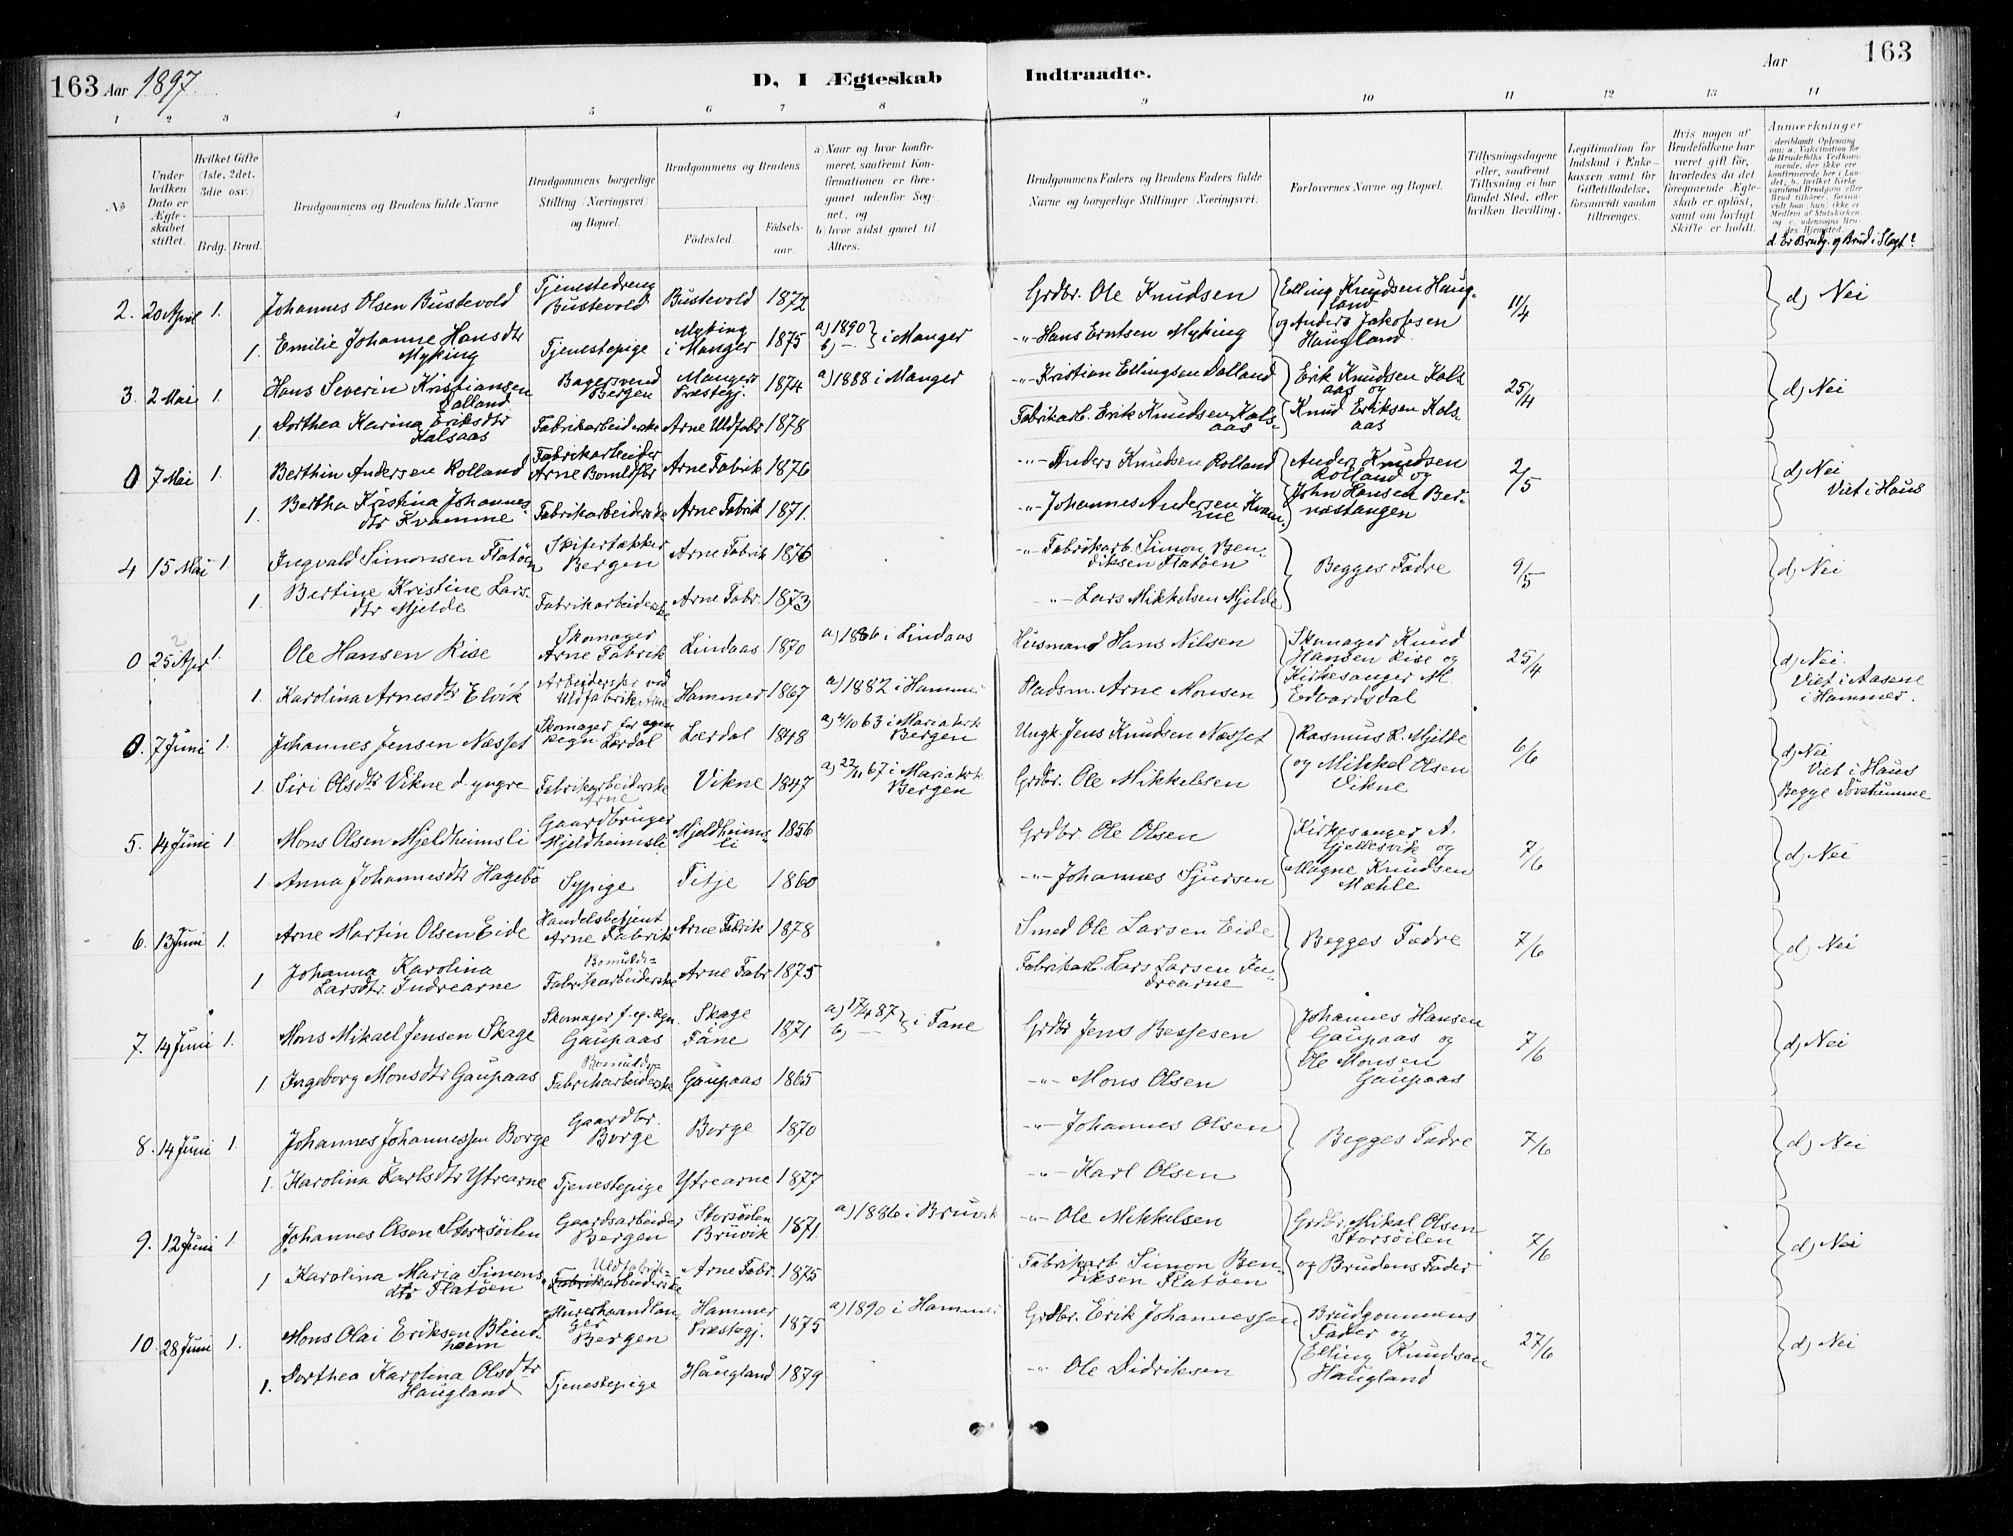 163 Aar 1897
D, I Ægteskab
Indtraadte.
Aar
163
1 2 3 4 5 6 7 8 9 10 11 12 13 14
No
Under hvilken Dato er Ægteskabet stiftet.
Hvilket Gifte (1ste, 2det, 3die osv.)
Brdg. Brud.
Brudgommens og Brudens fulde Navne
Brudgommens borgerlige Stilling (Næringsvei) og Bopæl.
Brudgommens og Brudens
Fødested. Fødselsaar.
a Naar og hvor konfirmeret, saafremt Konfirmationen er foregaaet udenfor Sognet, og
b hvor sidst gaaet til Alters.
Brudgommens Faders og Brudens Faders fulde Navne og borgerlige Stillinger (Næringsvei)
Forlovernes Navne og Bopæl.
Tillysningsdagene eller, saafremt Tillysning ei har fundet Sted, efter hvilken Bevilling.
Legitimation for Indskud i Enkekassen samt for Giftetilladelse, forsaavidt saadan tiltrænges.
Hvis nogen af Brudefolkene har været gift før, hvorledes da det foregaaende Ægteskab er opløst, samt om lovligt Skifte er holdt.
Anmærkninger
d. Er Brudg. og Brud i Slægt?
2. 20 April 1. Johannes Olsen Bustevold Tjenestedreng Bustevold Bustevold 1872 Grdbr. Ole Knudsen Elling Knudsen Haugland 11/4 d) Nei
1. Emilie Johanne Hansdtr Myking Tjenestepige Myking i Manger 1875 a) 1890 b) — i Manger -"- Hans Erntsen Myking og Anders Jakobsen Haugland
3. 2 Mai 1. Hans Severin Kristiansen Dalland Bagersvend Bergen Mangers Præstegj. 1874 a) 1888 i Manger -"- Kristian Ellingsen Dalland Erik Knudsen Kalsaas og 25/4 d) Nei
1. Dorthea Karina Eriksdtr Kalsaas Fabrikarbeiderske Arne Uldfabr 1878 Fabrikarb. Erik Knudsen Kalsaas Knud Eriksen Kalsaas
0 7 Mai 1. Berthin Andersen Rolland Fabrikarbeider Arne Bomldfbr Arne Fabrik 1876 -"- Anders Knudsen Rolland Anders Knudsen Rolland og 2/5 d) Nei Viet i Haus
1. Bertha Kristina Johannesdtr Kvamme Fabrikarbeiderske Arne Fabrik 1871. -"- Johannes Andersen Kvamme John Hansen Bernæstangen
4 15 Mai 1. Ingvald Simonsen Flatöen Skifertækker Bergen Arne Fabrik 1876 -"- Fabrikarb. Simon Bendiksen Flatöen Begges Fædre 9/5 d) Nei
1. Bertine Kristine Larsdtr Mjelde Fabrikarbeiderske Arne Fabr. 1873 -"- Lars Mikkelsen Mjelde
0 25 Apr 1. Ole Hansen Rise Skomager Arne Fabrik Lindaas 1870 a) 1886 i Lindaas Husmand Hans Nilsen Skomager Knud Hansen Rise og 25/4 d) Nei. Viet i Aasene i Hammer.
1. Karolina Arnesdtr Elvik Arbeiderske ved Uldfabrik Arne Hammer 1867 a) 1882 i Hammer Pladsm. Arne Monsen Kirkesanger M. Edvardsdal
0. 7 Juni 1. Johannes Jensen Næsset Skomager for egen Regn Lærdal Lærdal 1848 a) 4/10 63 i Mariakirk Bergen Ungk. Jens Knudsen Næsset Rasmus R. Mjelde 6/6 d) Nei Viet i Haus Begge døvstumme
1. Siri Olsdtr Vikne d. yngre Fabrikarbeiderske Arne Vikne 1847 a) 22/11 67 i Mariakrk. Bergen Grdbr. Ole Mikkelsen og Mikkel Olsen Vikne
5. 14 Juni 1. Mons Olsen Mjeldheimsli Gaardbruger Mjeldheimsli Mjeldheimsli 1856 Grdbr. Ole Olsen Kirkesanger A. Gjellesvik og 7/6 d) Nei
1. Anna Johannesdtr Hagebö Sypige Titje 1860 -"- Johannes Sjursen Magne Knudsen Mæhle
6. 13 Juni 1. Arne Martin Olsen Eide Handelsbetjent Arne Fabrik Arne Fabrik 1878 Smed Ole Larsen Eide Begges Fædre 7/6 d) Nei
1 Johanna Karolina Larsdtr. Indrearne Bomulds-Fabrikarbeiderske Arne Fabr 1875 Fabrikarb. Lars Larsen Indrearne
7. 14 Juni 1. Mons Mikael Jensen Skage Skomager f. eg. Rgn. Gaupaas Skage Fane 1871 a) 17/4 87 b) — i Fane Grdbr Jens Bessesen Johannes Hansen Gaupaas og 7/6 d) Nei
1 Ingeborg Monsdtr Gaupaas Bomulds-Fabrikarbeiderske Gaupaas 1865 -"- Mons Olsen Ole Monsen Gaupaas
8. 14 Juni 1. Johannes Johannessen Borge Gaardbr. Borge Borge 1870 -"- Johannes Olsen Begges Fædre 7/6 d) Nei
1. Karolina Karlsdtr Ytrearne Tjenestepige Ytrearne 1877 -"- Karl Olsen
9. 12 Juni 1. Johannes Olsen Storsöilen Gaardsarbeider Bergen Storsöilen Bruvik 1871. a) 1886 i Bruvik -"- Ole Mikkelsen Grdbr. Mikal Olsen Storsöilen 7/6 d) Nei
1 Karolina Maria Simonsdtr Flatöen Uldfabrikarbeiderske Arne Fabr. 1875 Fabrikarb Simon Bendiksen Flatöen og Brudens Fader
10. 28 Juni 1. Mons Olai Eriksen Blindheim Murerhaandlanger Bergen Hammer Præstegj. 1875 a) 1890 i Hammer Grdbr. Erik Johannessen Brudgommens Fader og 27/6 d) Nei
1. Dorthea Karolina Olsdtr Haugland Tjenestepige Haugland 1879 -"- Ole Didriksen Elling Knudsen Haugland